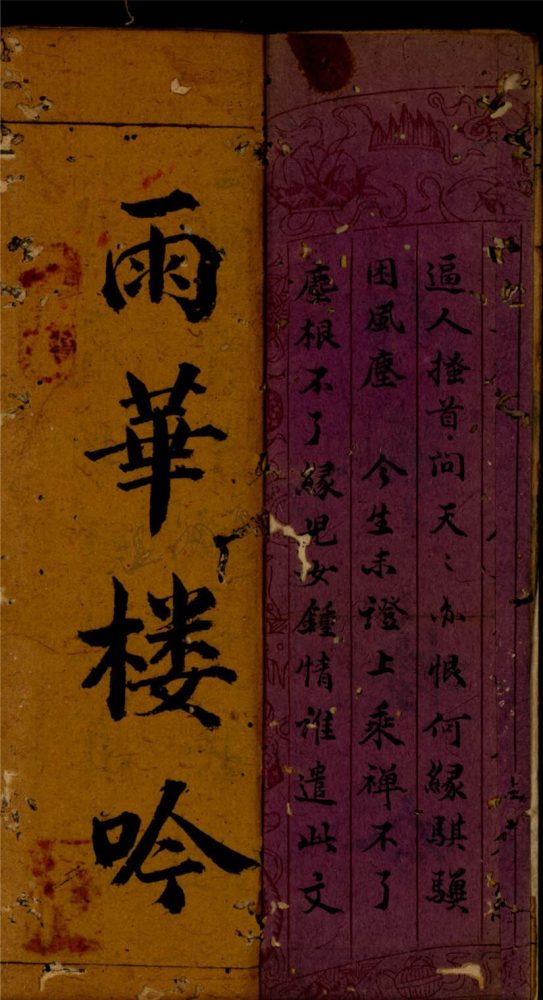 逼人搔首問天〻亦恨何緣騏驥
困風塵　今生未證上乘禅不了
塵根不了緣兒女鍾情誰遣此文
雨華楼吟